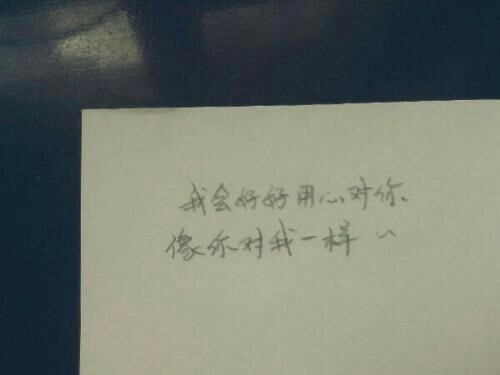 我会好好用心对你、
像你对我一样～